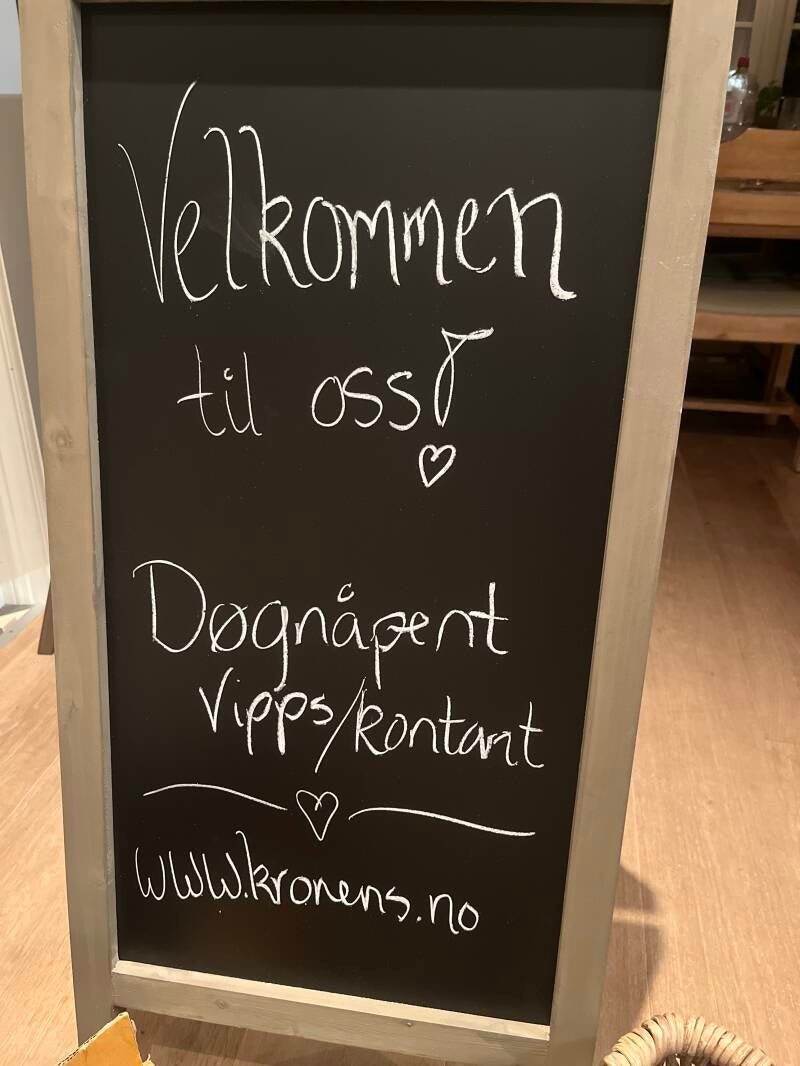 Velkommen
til oss!
Døgnåpent
Vipps/kontant
www.kronens.no